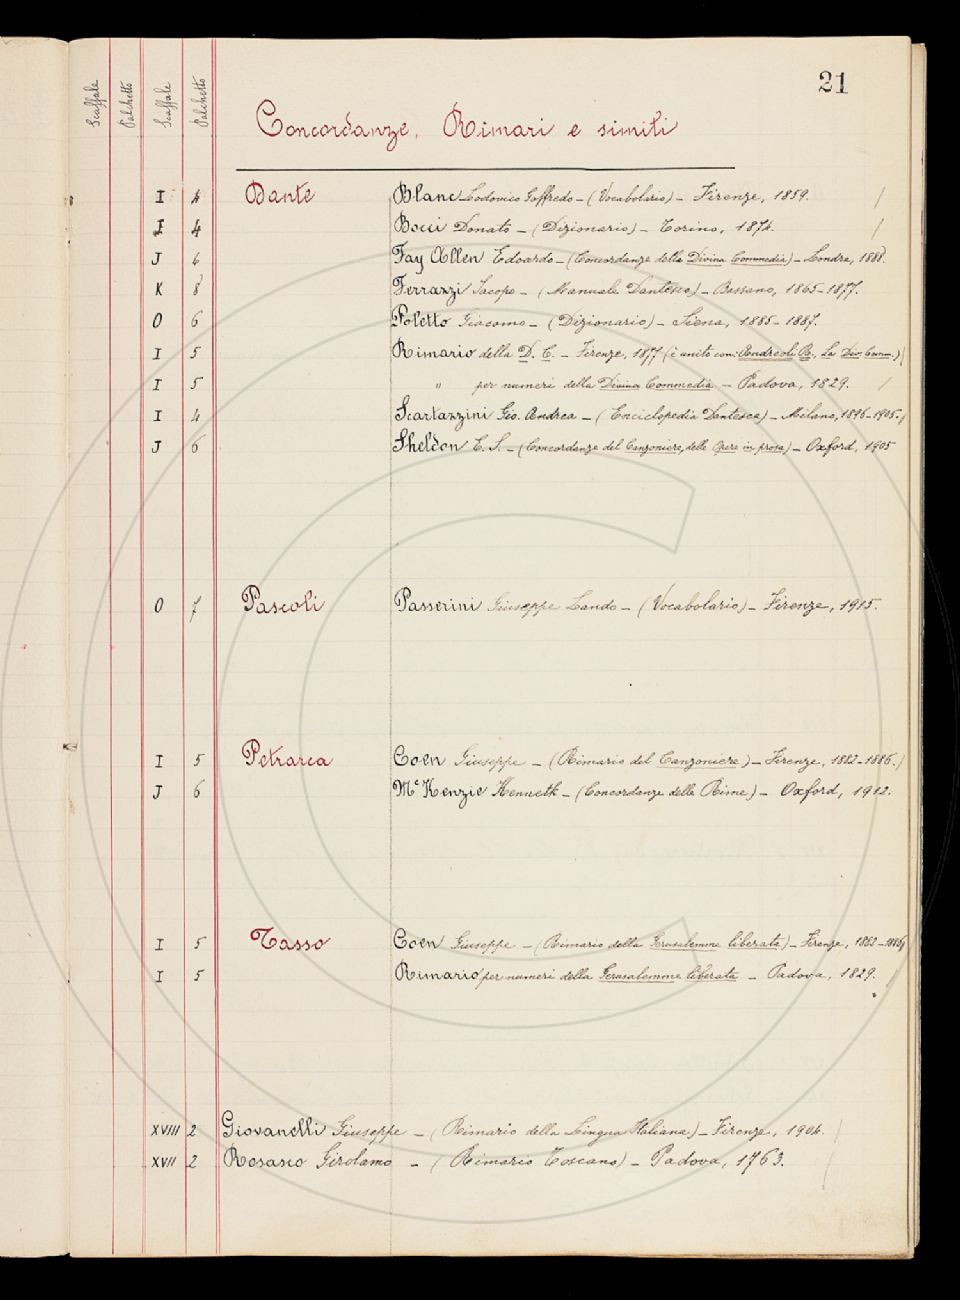 21
Scaffale Palchetto Scaffale Palchetto
Concordanze, Rimari e simili
I 4 Dante Blanc Lodovico Goffredo – (Vocabolario) – Firenze, 1859. /
I 4 Bocci Donato – (Dizionario) – Torino, 1874. /
J 6 Fay Allen Edoardo – (Concordanze della Divina Commedia) – Londra, 1888.
K 8 Ferrazzi Jacopo – (Manuale Dantesco) – Bassano, 1865–1877.
O 6 Poletto Giacomo – (Dizionario) – Siena, 1885–1887.
I 5 Rimario della D. C. – Firenze, 1877 (è unito con: Andreoli R., La Div. Comm.) /
I 5 " per numeri della Divina Commedia – Padova, 1829. /
I 4 Scartazzini Gio. Andrea – (Enciclopedia Dantesca) – Milano, 1896–1905. /
J 6 Sheldon E. S. – (Concordanze del Canzoniere, delle Opere in prosa) – Oxford, 1905
O 7 Pascoli Passerini Giuseppe Lando – (Vocabolario) – Firenze, 1915.
I 5 Petrarca Coen Giuseppe – (Rimario del Canzoniere) – Firenze, 1822–1886. /
J 6 Mc Kenzie Kenneth – (Concordanze delle Rime) – Oxford, 1912.
I 5 Tasso Coen Giuseppe – (Rimario della Gerusalemme liberata) – Firenze,
I 5 Rimario per numeri della Gerusalemme liberata – Padova, 1829. /
XVIII 2 Giovanelli Giuseppe – (Rimario della Lingua Italiana) – Firenze, 1904. /
XVII 2 Rosasco Girolamo – (Rimario Toscano) – Padova, 1763. /